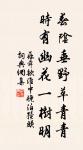 春陰垂野草青青
時有幽花一樹明
蘇舜欽淮中晚泊犢頭
詞典網集